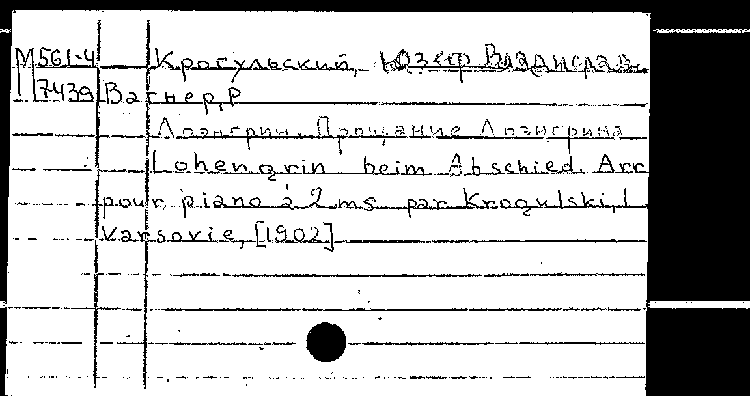 М561-4 Крогульский, Юзеф Владислав.
7439 Вагнер, Р
Лоэнгрин. Прощание Лоэнгрина
Lohengrin beim Abschied. Arr
pour piano à 2 ms par Krogulski, I
Varsovie, [1902]